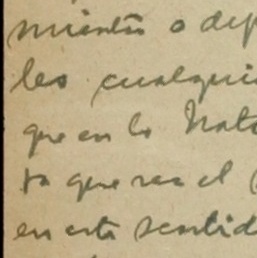 mientos o dep
les cualqui
que en lo Nato
ta que sea el
en este sentid